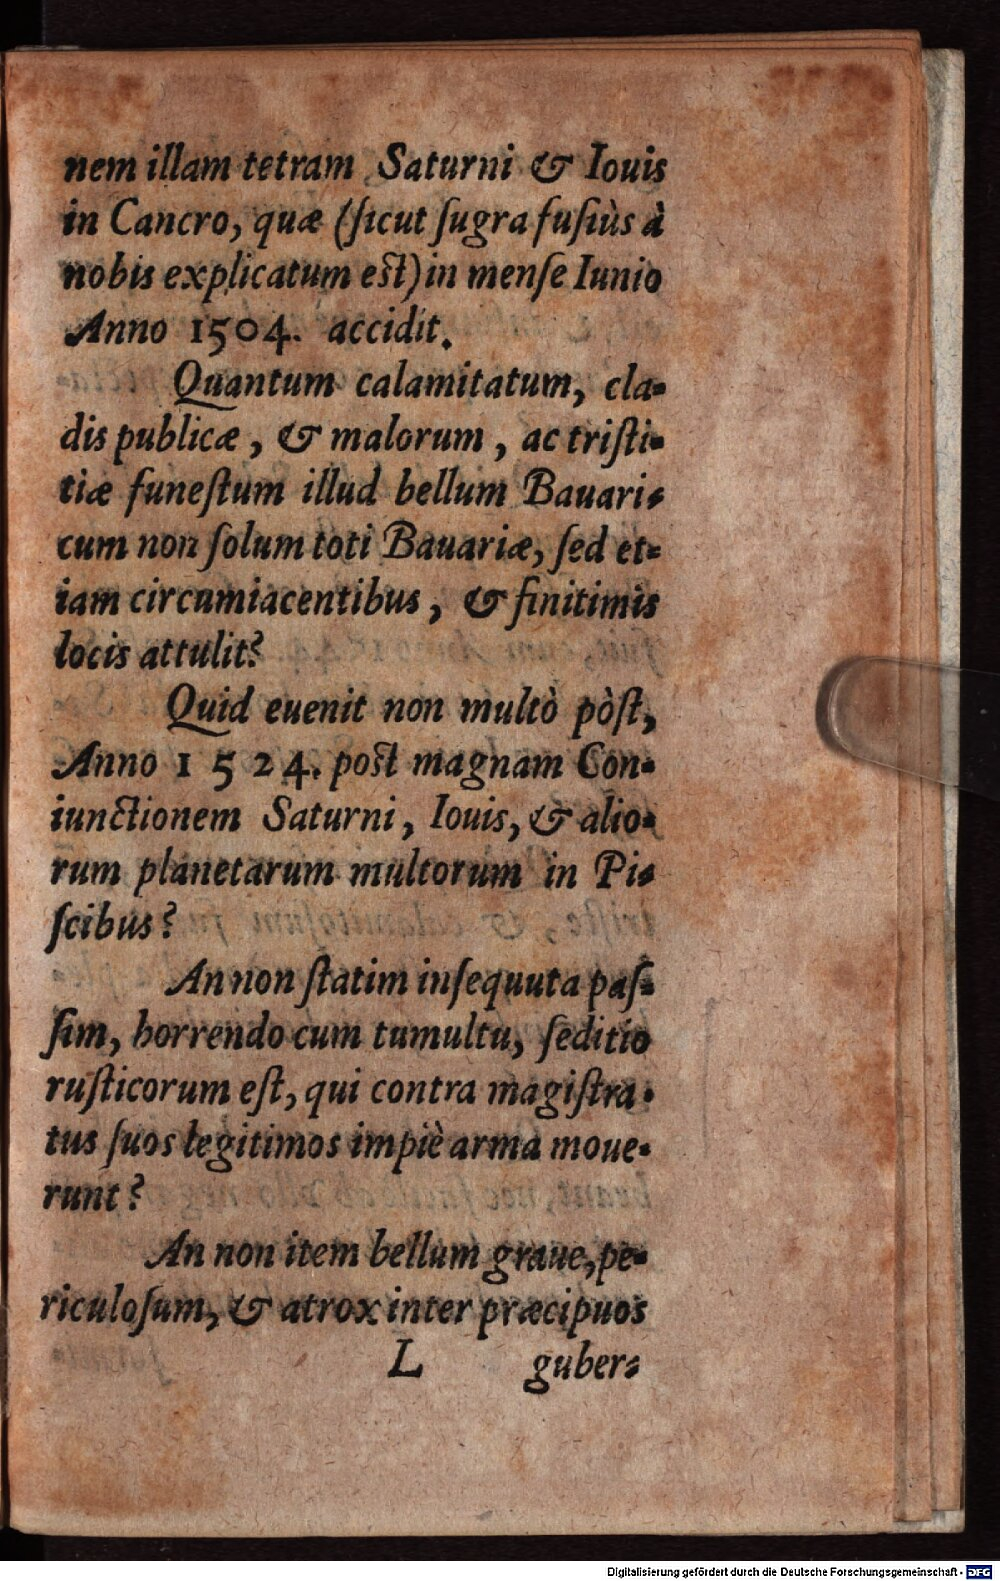 nem illam tetram Saturni & Iouis
in Cancro, quæ (ſicut ſugra fuſiùs à
nobis explicatum eſt) in menſe Iunio
Anno 1504. accidit.
Quantum calamitatum, cla-
dis publicæ, & malorum, ac triſti-
tiæ funeſtum illud bellum Bauari-
cum non ſolum toti Bauariæ, ſed et-
iam circumiacentibus, & finitimis
locis attulit?
Quid euenit non multò pòſt,
Anno 1524. poſt magnam Con-
iunctionem Saturni, Iouis, & alio-
rum planetarum multorum in Pi-
ſcibus?
An non ſtatim inſequuta paſ-
ſim, horrendo cum tumultu, ſeditio
ruſticorum eſt, qui contra magiſtra-
tus ſuos legitimos impiè arma moue-
runt?
An non item bellum graue, pe-
riculoſum, & atrox inter præcipuos
L guber-
Digitalisierung gefördert durch die Deutsche Forschungsgemeinschaft - DFG